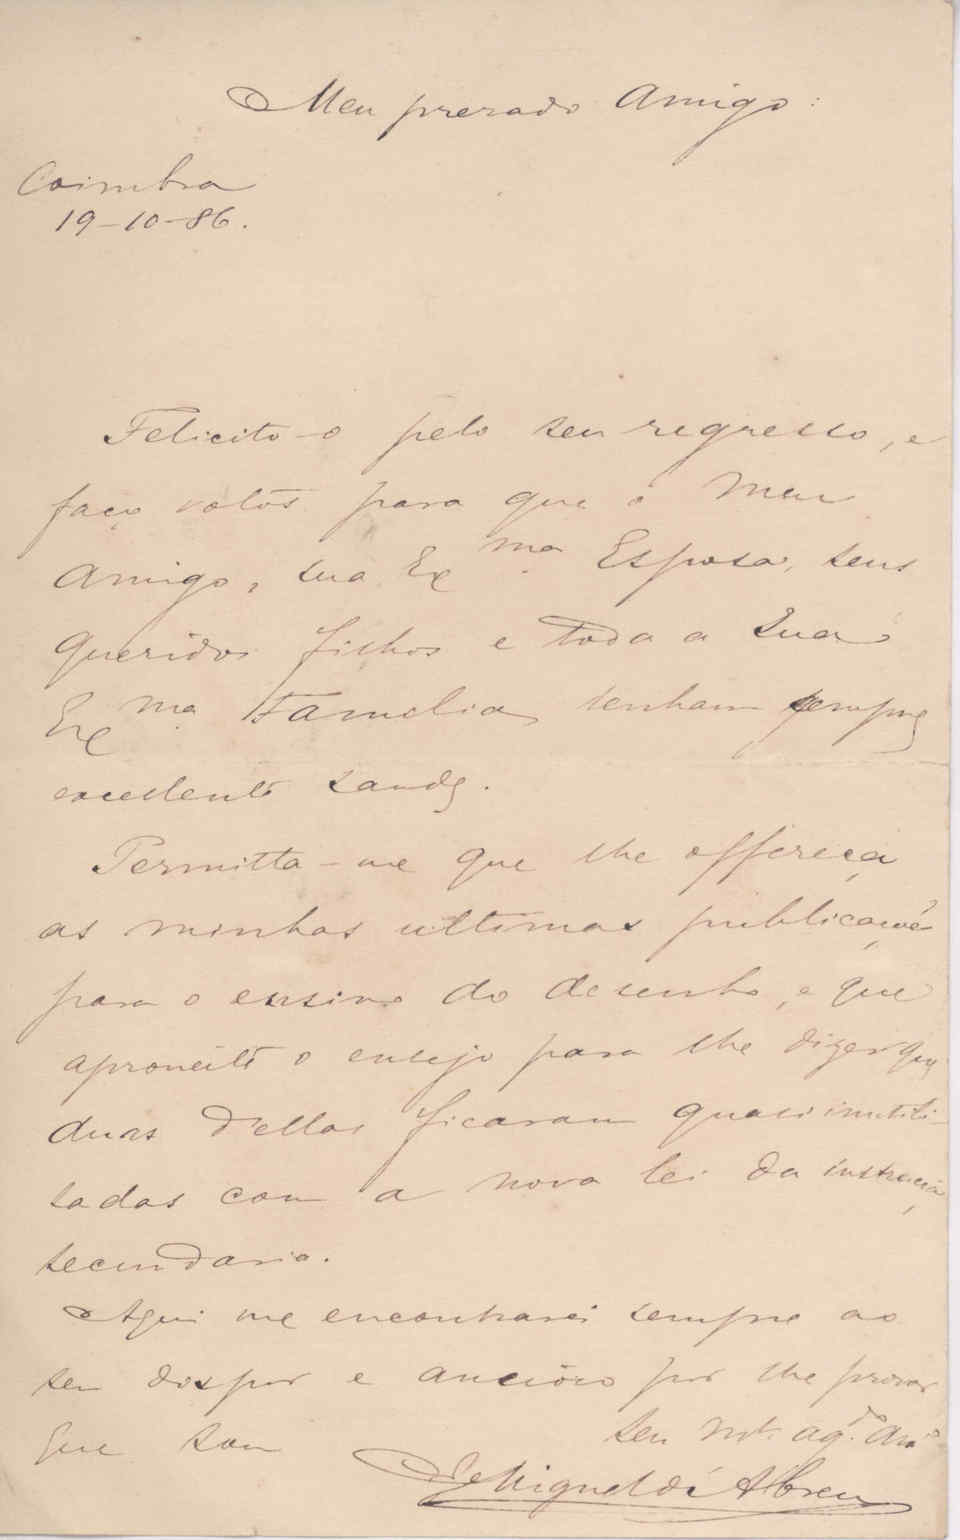 Meu presado Amigo:
Coimbra
19-10-86.
Felicito-o pelo seu regresso, e
faço votos para que o meu
amigo, sua Ex.ma Esposa, seus
queridos filhos e toda a sua
Ex.ma Familia tenham sempre
excellente saude.
Permitta-me que lhe offereça
as minhas ultimas publicações
para o ensino do desenho, e que
aproveite o ensejo para lhe dizer que
duas d'ellas ficaram quasi inutili-
sadas com a nova lei da instrucção
secundaria.
Aqui me encontrará sempre ao
seu dispor e ancioso por lhe provar
que sou
seu mt. ag.do am.o
de Miguel d'Abreu